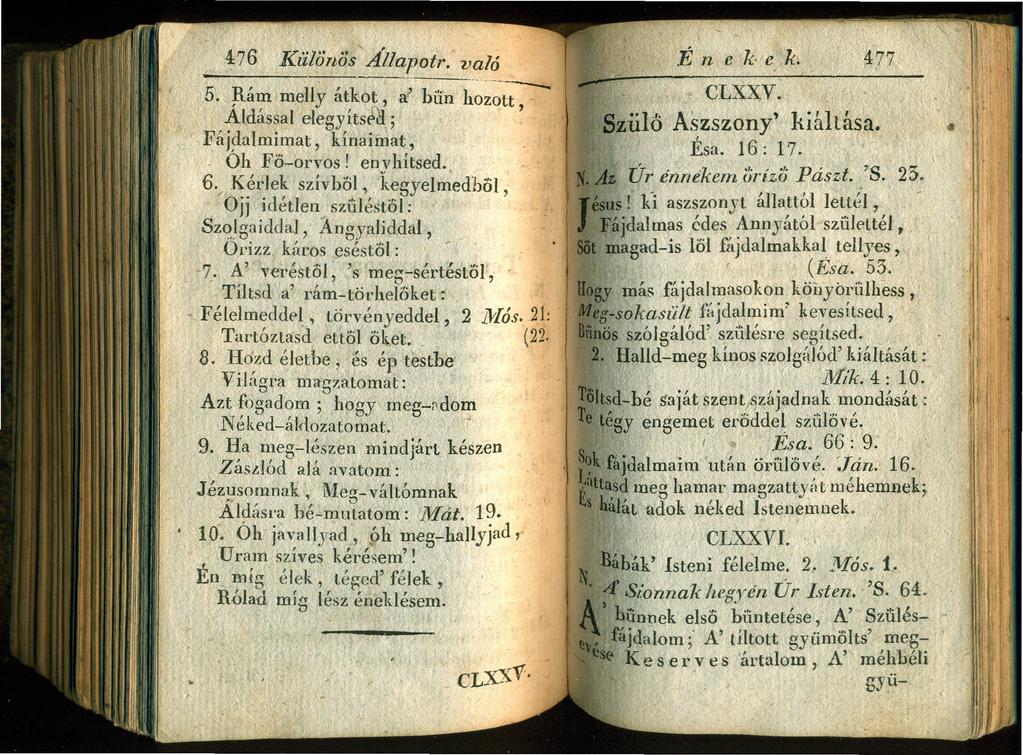 476 Különös Állapotr. való
5. Rám melly átkot, a' bün hozott,
Áldással elegyítséd;
Fájdalmimat, kínaimat,
Óh Fő-orvos! enyhítsed.
6. Kérlek szívből, kegyelmedből,
Ojj idétlen szüléstöl:
Szolgaiddal, Angyaliddal,
Örizz káros eséstöl:
7. A' veréstől, 's meg-sértéstől,
Tíltsd a' rám-törhelőket:
Félelmeddel, törvényeddel, 2 Mós. 21:
Tartóztasd ettöl öket. (22.
8. Hozd életbe, és ép testbe
Világra magzatomat:
Azt fogadom; hogy meg-adom
Néked-áldozatomat.
9. Ha meg-lészen mindjárt készen
Zászlód alá avatom:
Jézusomnak, Meg-váltómnak
Áldásra bé-mutatom: Mát. 19.
10. Óh javallyad, óh meg-hallyjad,
Uram szíves kérésem'!
Én míg élek, téged' félek,
Rólad míg lész éneklésem.
CLXXV.
Énekek. 477
CLXXV.
Szülő Aszszony' kiáltása.
Ésa. 16: 17.
N. Az Úr énnekem örízö Pászt. 'S. 23.
Jésus! ki aszszonyt állattól lettél,
Fájdalmas édes Annyától születtél,
Söt magad-is löl fájdalmakkal tellyes,
(Ésa. 53.
Hogy más fájdalmasokon könyörülhess,
Meg-sokasúlt fájdalmim' kevesítsed,
Bünös szólgálód' szülésre segítsed.
2. Halld-meg kínos szolgálód' kiáltását:
Mik. 4: 10.
Töltsd-bé saját szent szájadnak mondását:
Te tégy engemet eröddel szülövé.
Esa. 66: 9.
Sok fájdalmaim után örülövé. Ján. 16.
Láttasd meg hamar magzattyát méhemnek;
És hálát adok néked Istenemnek.
CLXXVI.
Bábák' Isteni félelme. 2. Mós. 1.
N. A' Sionnak hegyén Úr Isten. 'S. 64.
A' bünnek elsö büntetése, A' Szülés-
fájdalom; A' tíltott gyümölts' meg-
evése Keserves ártalom, A' méhbéli
gyü-